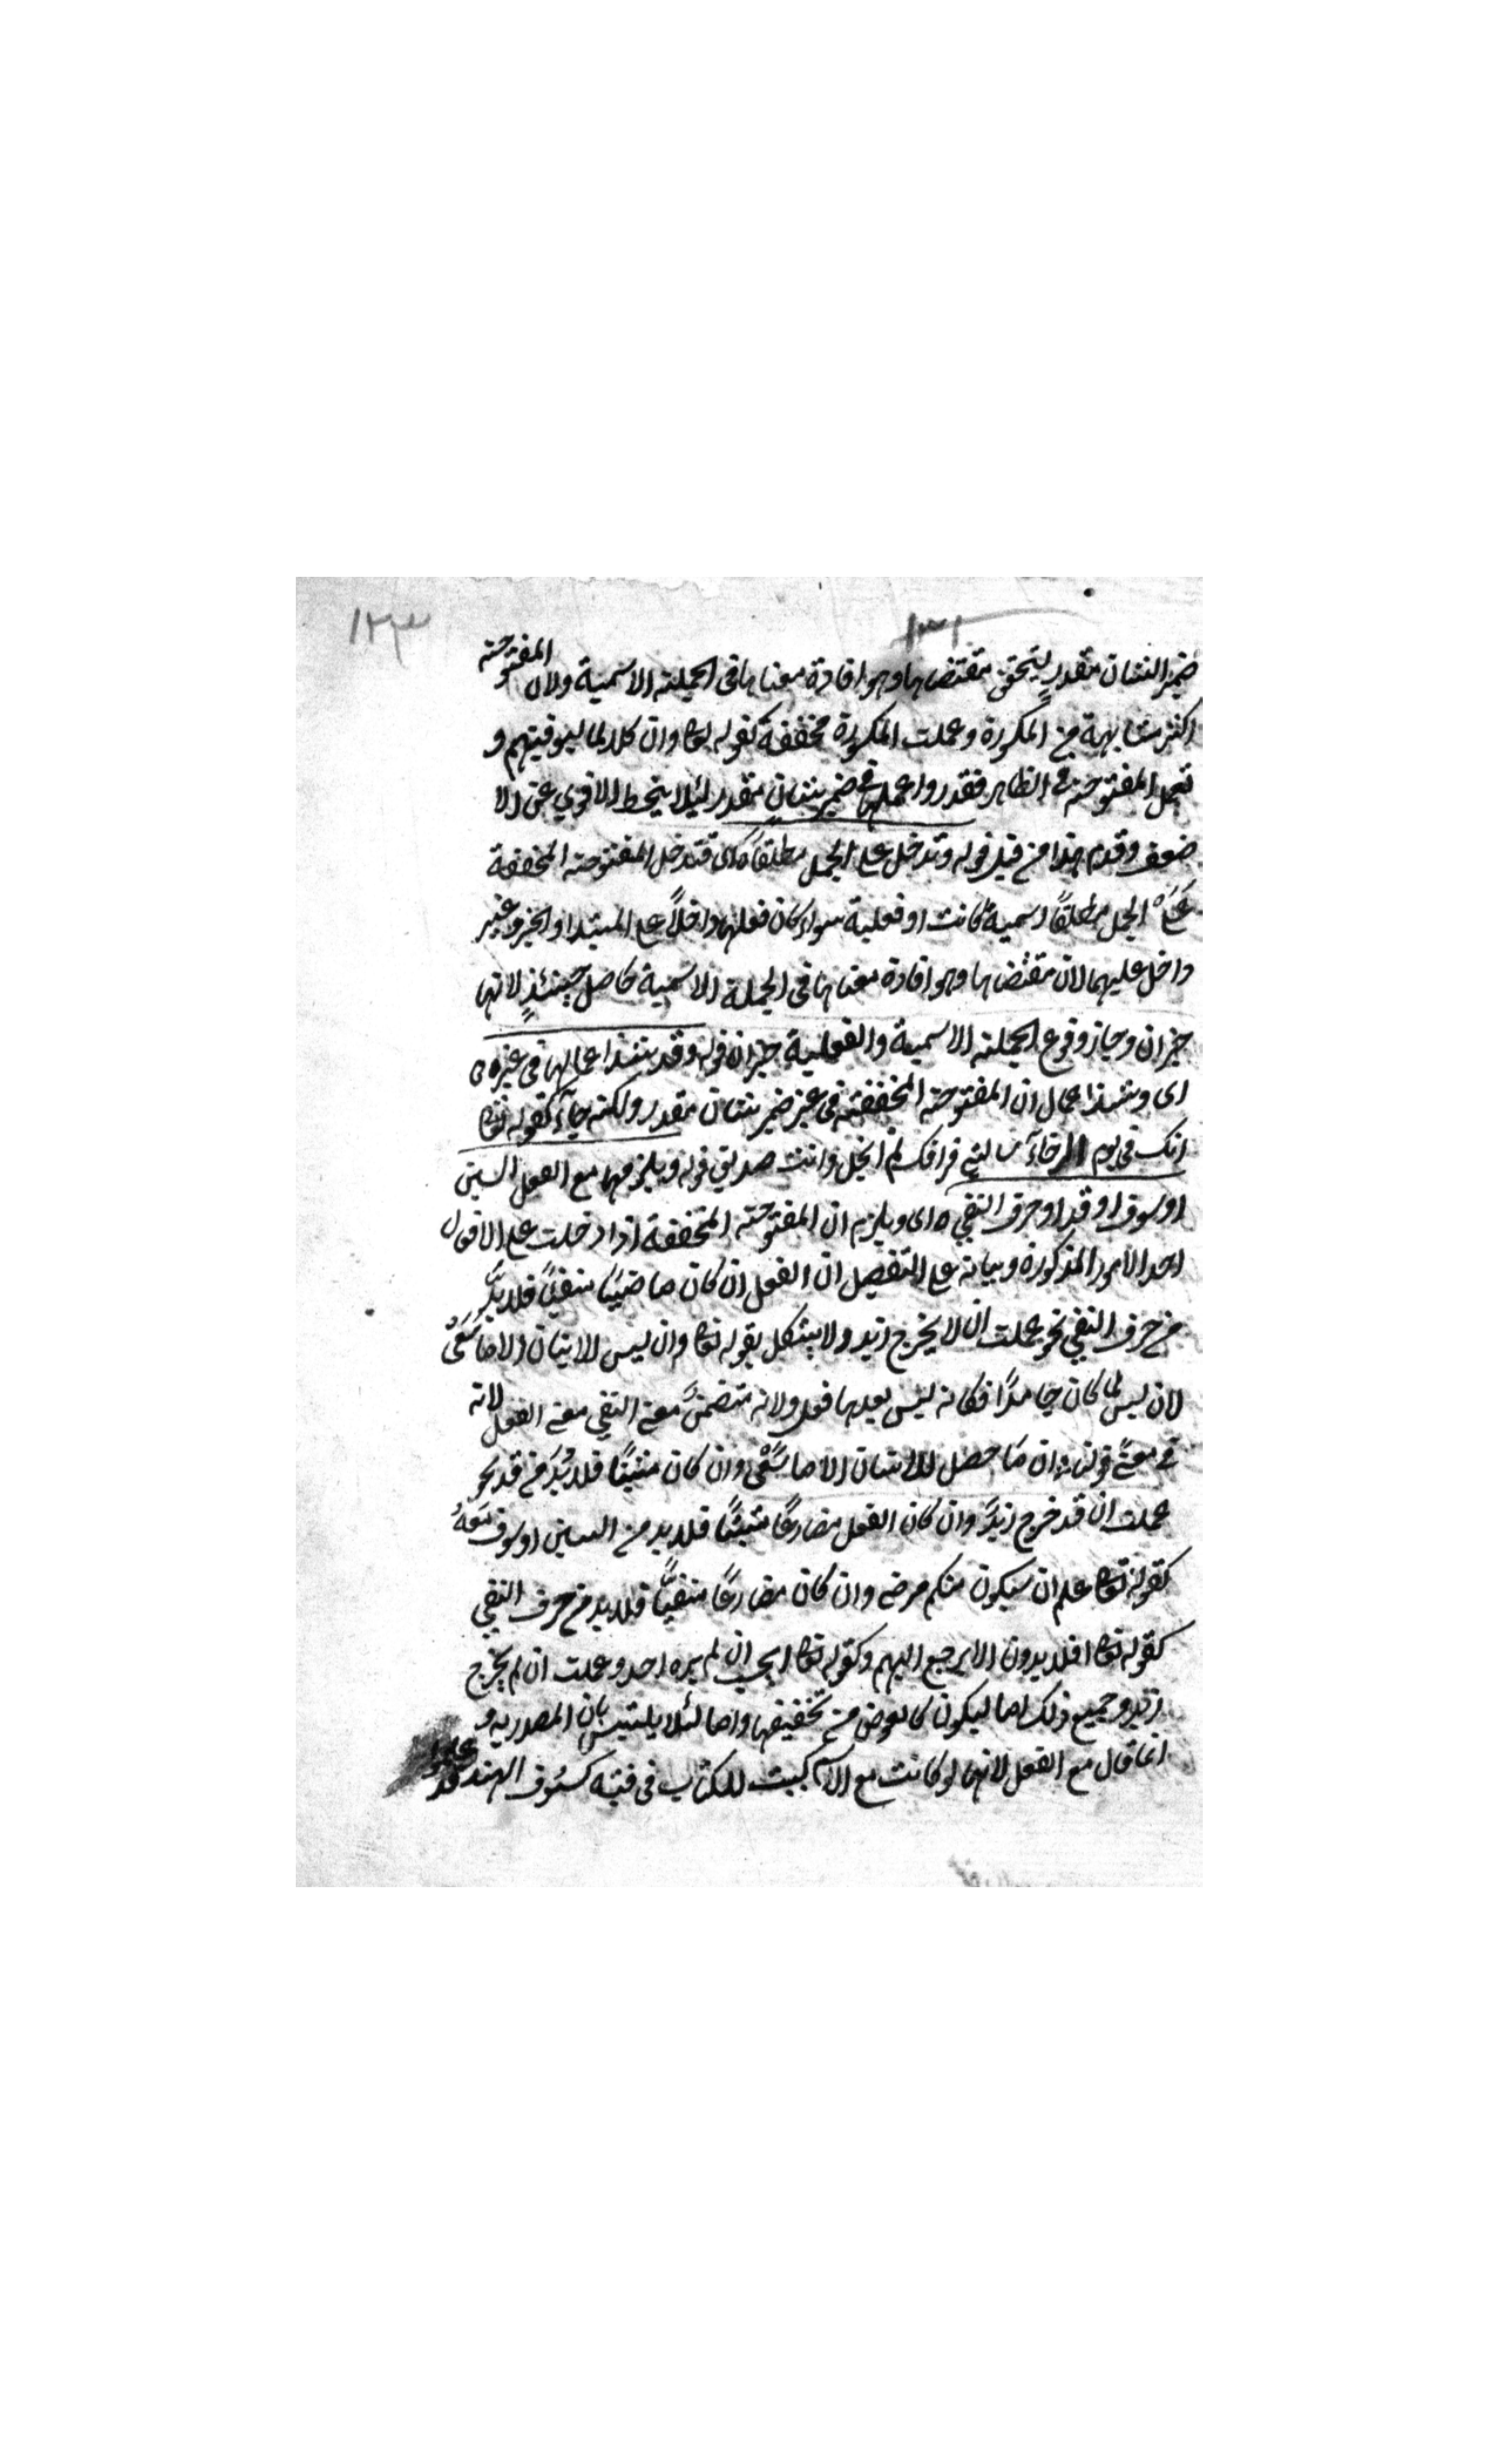 ١٢٣
١٣١
ضمير الشان مقدر ليتحقق مقتضاها وهو افادة معناها في الجملة الاسمية ولان المفتوحة
اكثر مشابهة من المكسورة وعملت المكسورة مخففة كقوله تعا وان كلا لما ليوفينهم و
تعمل المفتوحة في الظاهر فقدروا عملها في ضمير شان مقدر لئلا ينحط الاقوي عن الا
ضعف وقدم هذا من قبل قوله وتدخل على الجمل مطلقا ه اى فتدخل المفتوحة المخففة
على الجمل مطلقًا اسمية كانت او فعلية سواء كان فعلها داخلاً على المبتدا والخبر وغير
داخل عليهما لان مقتضاها وهو افادة معناها في الجملة الاسمية حاصل حينئذٍ لانها
خبر ان وجاز وقوع الجملة الاسمية والفعلية خبر ان قوله وقد شذ اعمالها في غيره ه
اى وشذ اعمال ان المفتوحة المخففة في غير ضمير شان مقدر ولكنه جآء كقوله تعا
انك في يوم الرخآء سالتني فراقك لم ابخل وانت صديق قوله ويلزمها مع الفعل السين
او سوف او قد او حرف النفي ه اى ويلزم ان المفتوحة المخففة اذا دخلت على الافعال
احد الامور المذكورة وبيانه على التفصيل ان الفعل ان كان ماضيًا منفيًا فلا بدَّ
من حرف النفي نحو عملت ان لا يخرج زيد ولا يشكل بقوله تعا وان ليس للانسان الا ما سَعَى
لان ليس لما كان جامدًا فكانه ليس بعدها فعل ولانه متضمنً معنى النفي معنى الفعل لانه
في معنى قولنا ان مَا حصل للانسان الا ما سَعْى وان كان مثبتًا فلا بُدَّ من قد نحو
عملت ان قد خرج زيدً وان كان الفعل مضارعًا مثبتًا فلا بد من السين او سوف معهُ
كقوله تعا علم ان سيكون منكم مرضى وان كان مضارعًا منفيًّا فلا بد من حرف النفي
كقوله تعا افلا يرون الا يرجع اليهم وكقوله تعا ايحسب ان لم يره احد وعملت ان لم يخرج
زيد وجميع ذلك اما ليكون كالعوض من تخفيفها واما لئلا يلتبس بان المصدرية و
انما قال مع الفعل لانها لو كانت مع الاسم كبيت الكتاب في فتية كسيوف الهند قد علموا